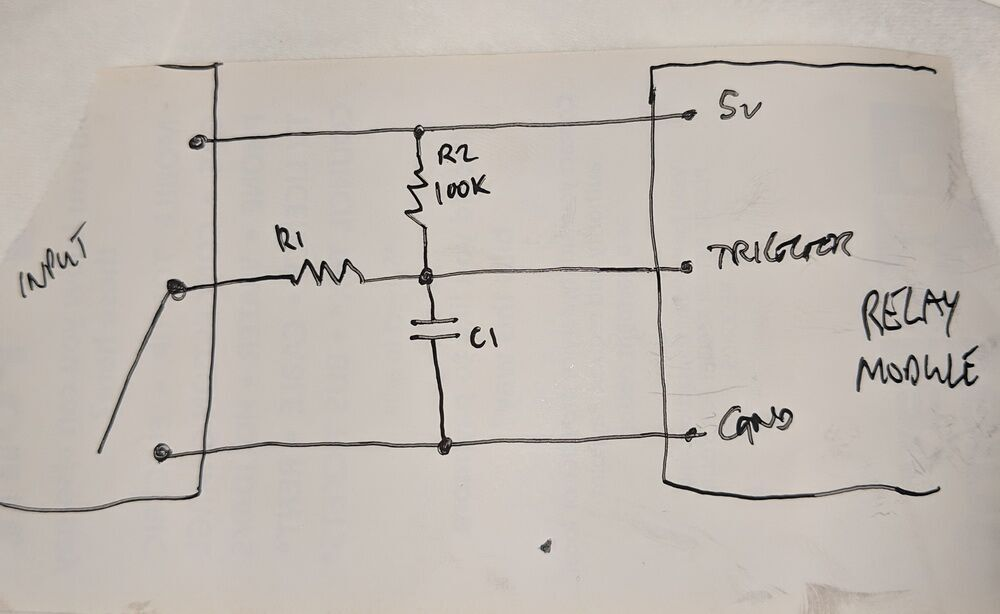 5v
R2
100K
R1
INPUT
TRIGGER
C1
RELAY
MODULE
GND